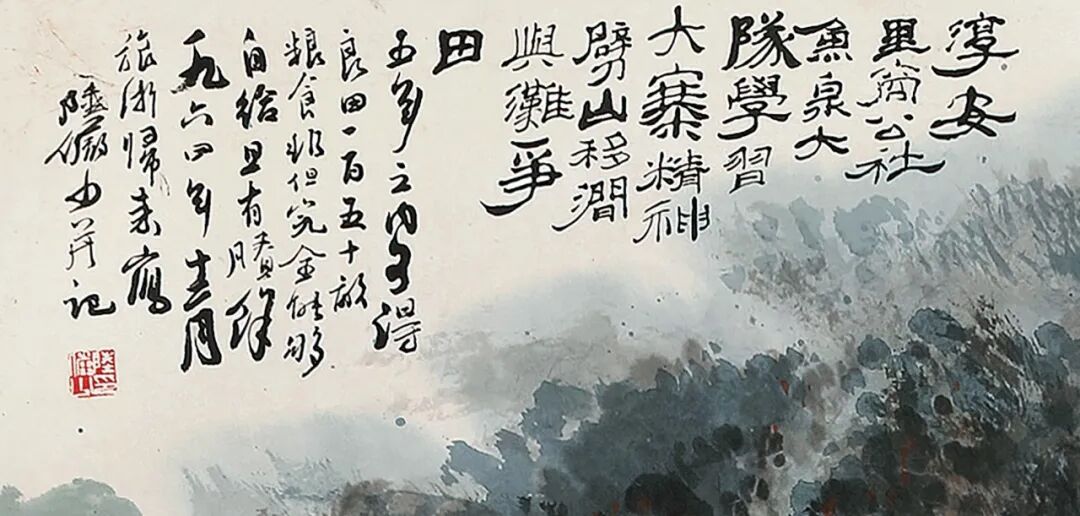 淳安
里商公社
魚泉大
隊學習
大寨精神
劈山移澗
與灘爭
田
五年之內可得
良田一百五十畝
粮食非但完全能够
自給且有賸餘
一九六四年十二月
旅浙歸来寫
陸儼少并記